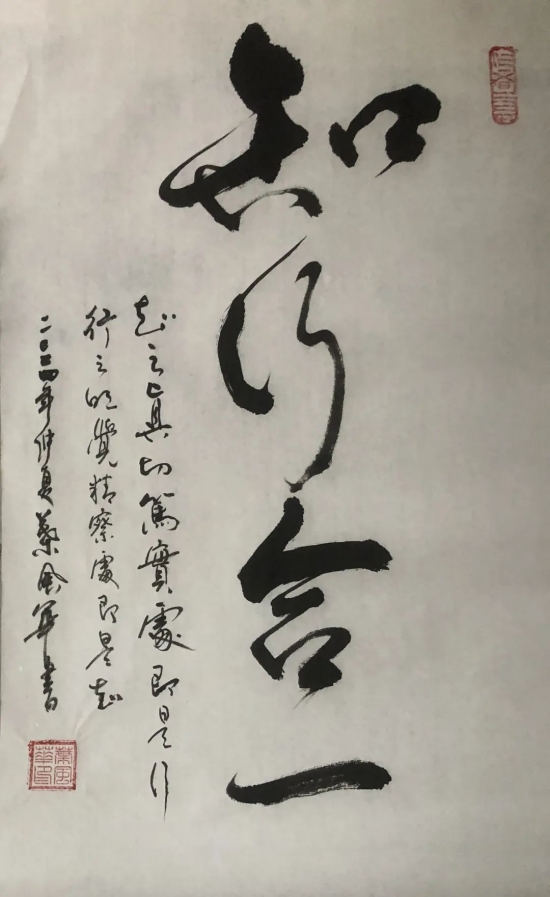 知行合一
知之真切篤實處即是行
行之明覺精察處即是知
二〇二四年仲夏葉風華書
葉風華印